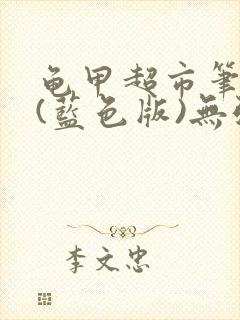 龟甲超市筆
(藍色版)無
李文忠